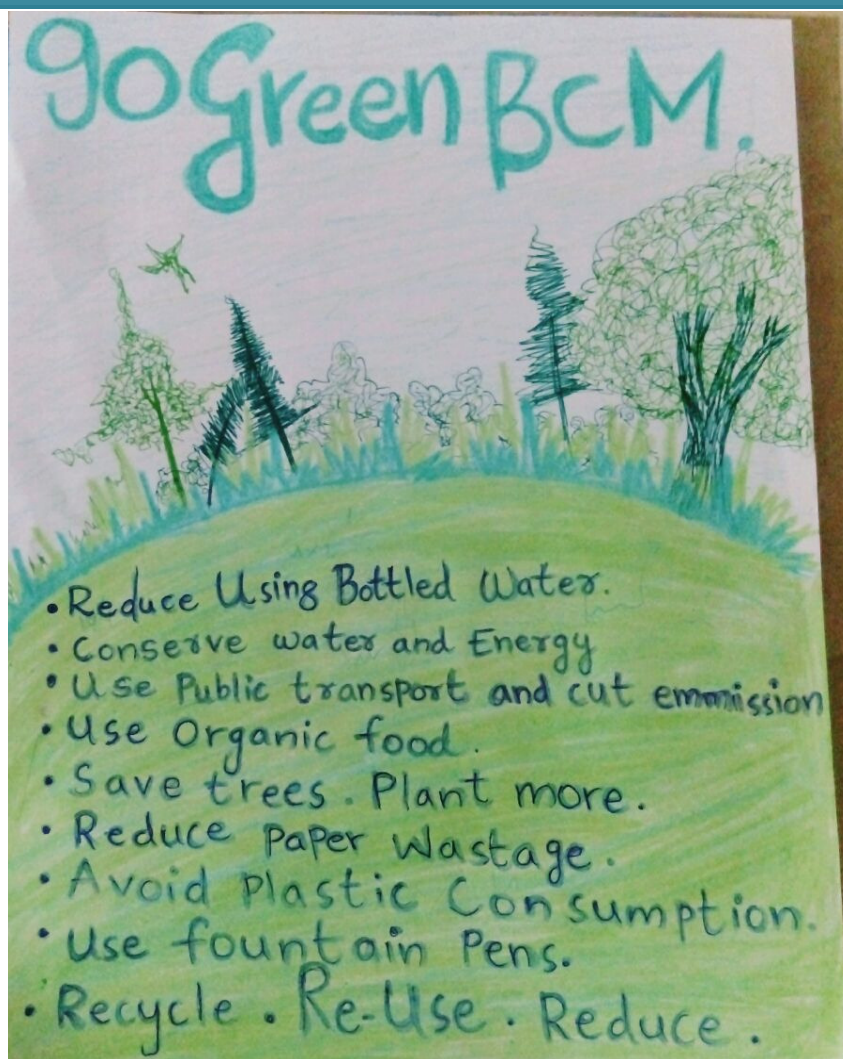 go Green BCM.
• Reduce Using Bottled Water.
• Conserve water and Energy
• Use Public transport and cut emmission
• Use Organic food.
• Save trees. Plant more.
• Reduce Paper Wastage.
• Avoid Plastic Consumption.
• Use fountain Pens.
• Recycle. Re-Use. Reduce.